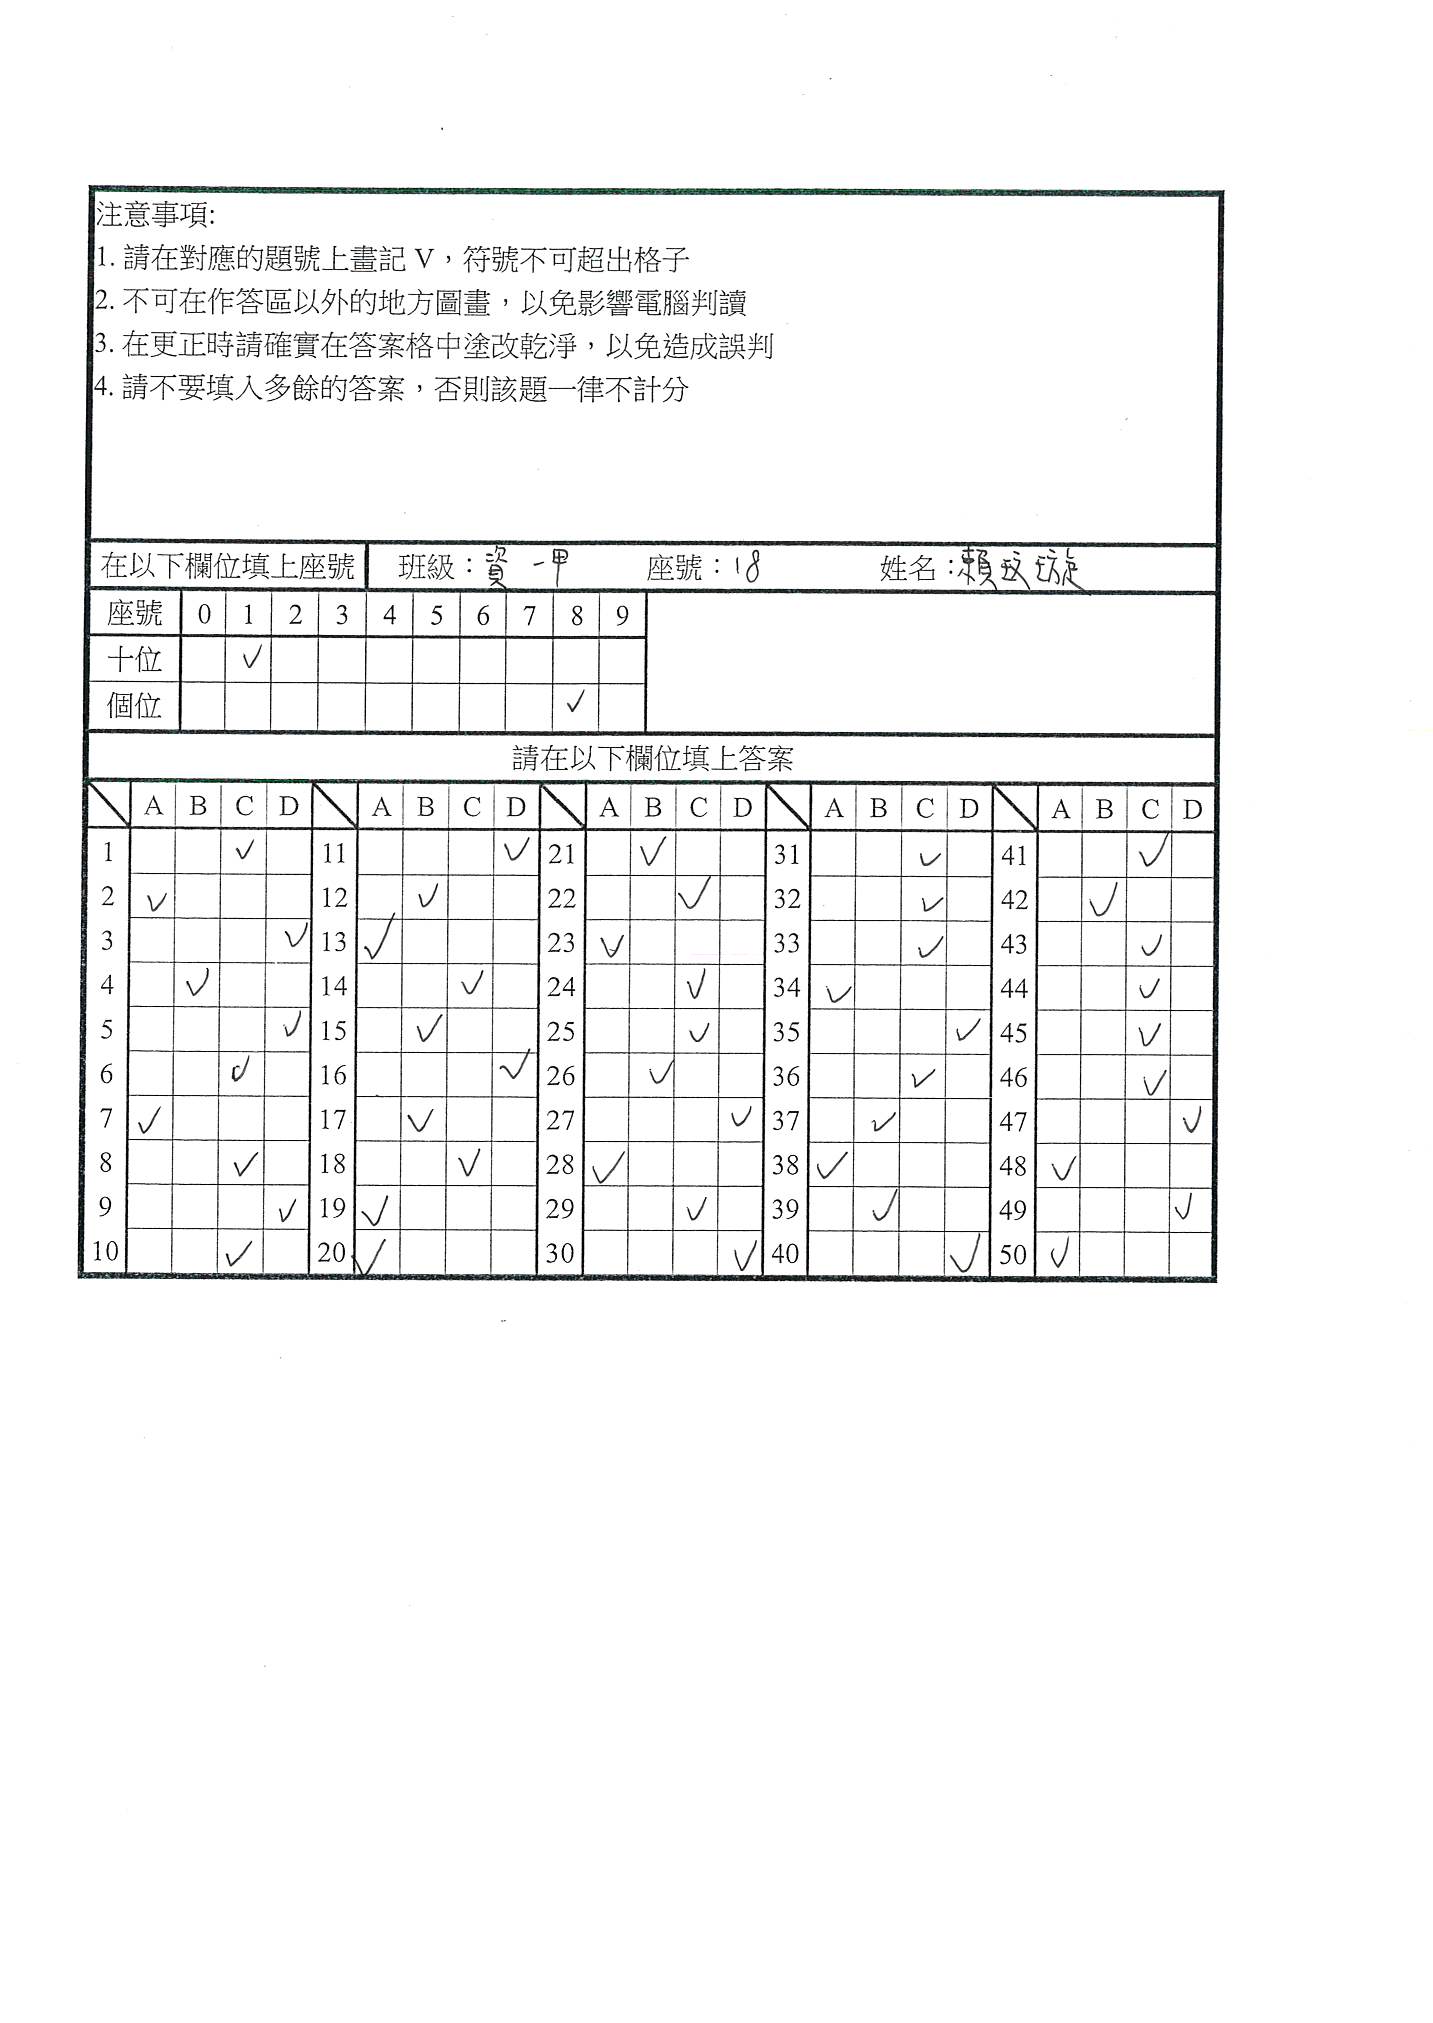 注意事項:
1. 請在對應的題號上畫記 V，符號不可超出格子
2. 不可在作答區以外的地方圖畫，以免影響電腦判讀
3. 在更正時請確實在答案格中塗改乾淨，以免造成誤判
4. 請不要填入多餘的答案，否則該題一律不計分
在以下欄位填上座號 班級：資一甲 座號：18 姓名：賴玟璇
座號 0 1 2 3 4 5 6 7 8 9
十位 ✓
個位 ✓
請在以下欄位填上答案
A B C D A B C D A B C D A B C D A B C D
1 ✓ 11 ✓ 21 ✓ 31 ✓ 41 ✓
2 ✓ 12 ✓ 22 ✓ 32 ✓ 42 ✓
3 ✓ 13 ✓ 23 ✓ 33 ✓ 43 ✓
4 ✓ 14 ✓ 24 ✓ 34 ✓ 44 ✓
5 ✓ 15 ✓ 25 ✓ 35 ✓ 45 ✓
6 ✓ 16 ✓ 26 ✓ 36 ✓ 46 ✓
7 ✓ 17 ✓ 27 ✓ 37 ✓ 47 ✓
8 ✓ 18 ✓ 28 ✓ 38 ✓ 48 ✓
9 ✓ 19 ✓ 29 ✓ 39 ✓ 49 ✓
10 ✓ 20 ✓ 30 ✓ 40 ✓ 50 ✓